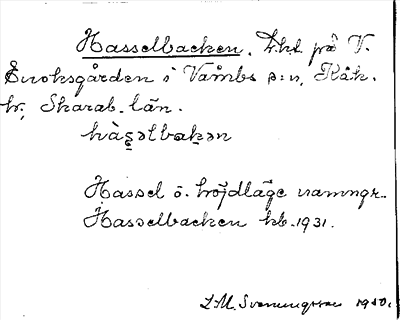 Hasselbacken. Lht på V.
Enoksgården i Våmbs s:n, Kåk.
hr, Skarab. län.
hàsəlbakən
Hassel ö. höjdläge namngr.
Hasselbacken kb. 1931.
L.M. Svenungsson 1940.